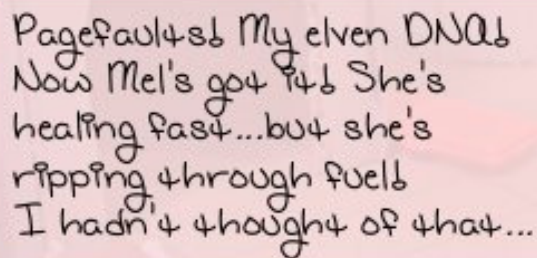 Pagefaults! My elven DNA!
Now Mel's got it! She's
healing fast...but she's
ripping through fuel!
I hadn't thought of that...